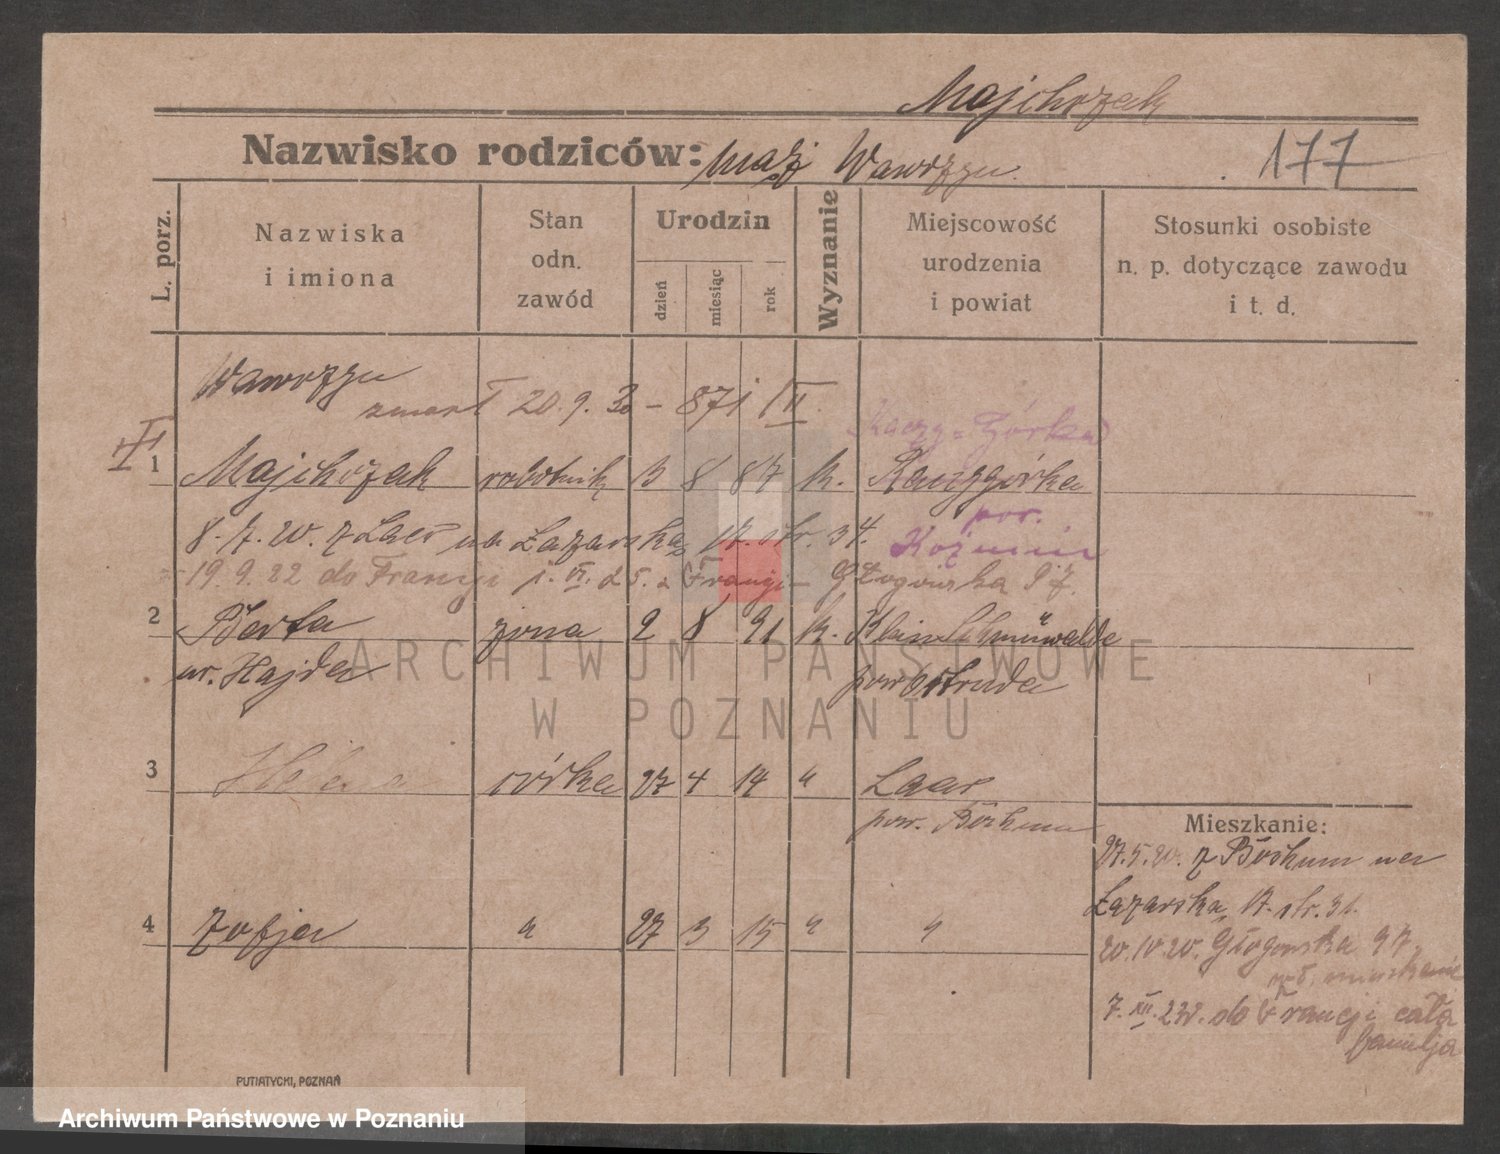 Majchrzak
Nazwisko rodziców: mąż Wawrzyn 177
L. porz.
Nazwiska i imiona
Stan odn. zawód
Urodzin
dzień
miesiąc
rok
Wyznanie
Miejscowość urodzenia i powiat
Stosunki osobiste n. p. dotyczące zawodu i t. d.
Wawrzyn
zmarł 20.9.30 - 871 III
Kaczy-Górka
1 Majchrzak robotnik 13 8 87 k. Kaczagórka
pow.
Koźmin
8.7.20. z Laer na Łazarska 17. str. 34.
19 9.22 do Francji 1. VI. 25. z Francji - Głogowska 97.
2 Berta żona 2 8 91 k.
ur. Hajda pow Ostruda
3 Helena córka 27 4 14 " Laar
pow. Bochum
4 Zofja " 27 3 15 " "
Mieszkanie:
27.5.20. z Bochum na
Łazarska 17. str. 31.
20.IV.20. Głogowska 97.
7.XII.23. do Francji cała
familja
PUTIATYCKI, POZNAŃ
ARCHIWUM PAŃSTWOWE
W POZNANIU
Archiwum Państwowe w Poznaniu